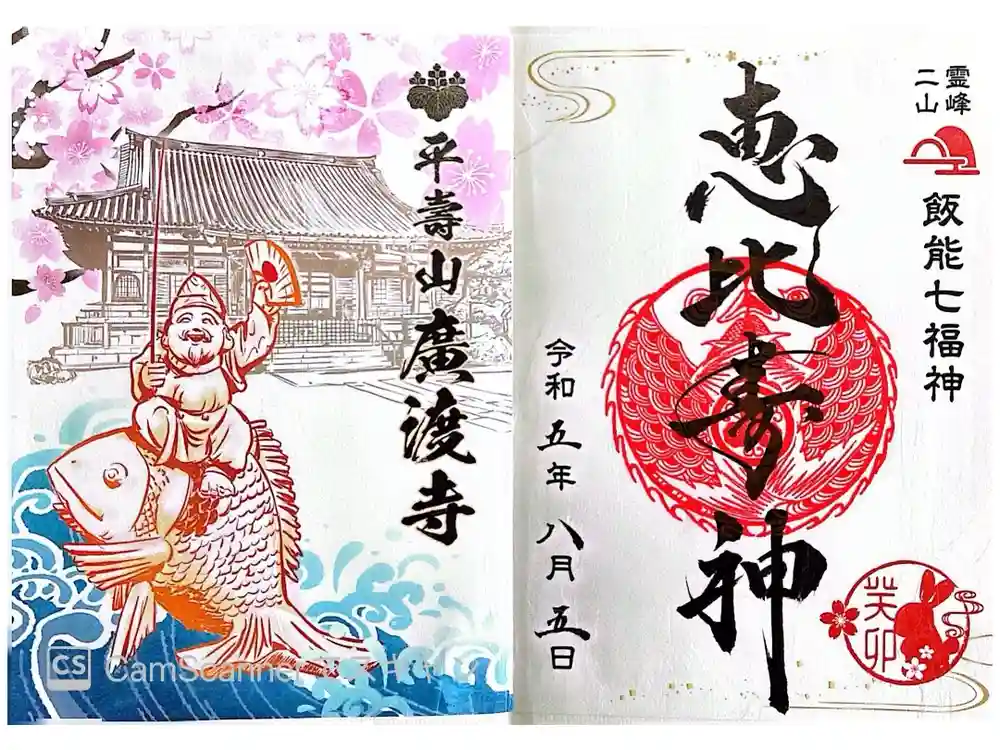 霊峰
二山
飯能七福神
恵比寿神
令和五年八月五日
癸卯
平壽山廣渡寺
CS CamScanner